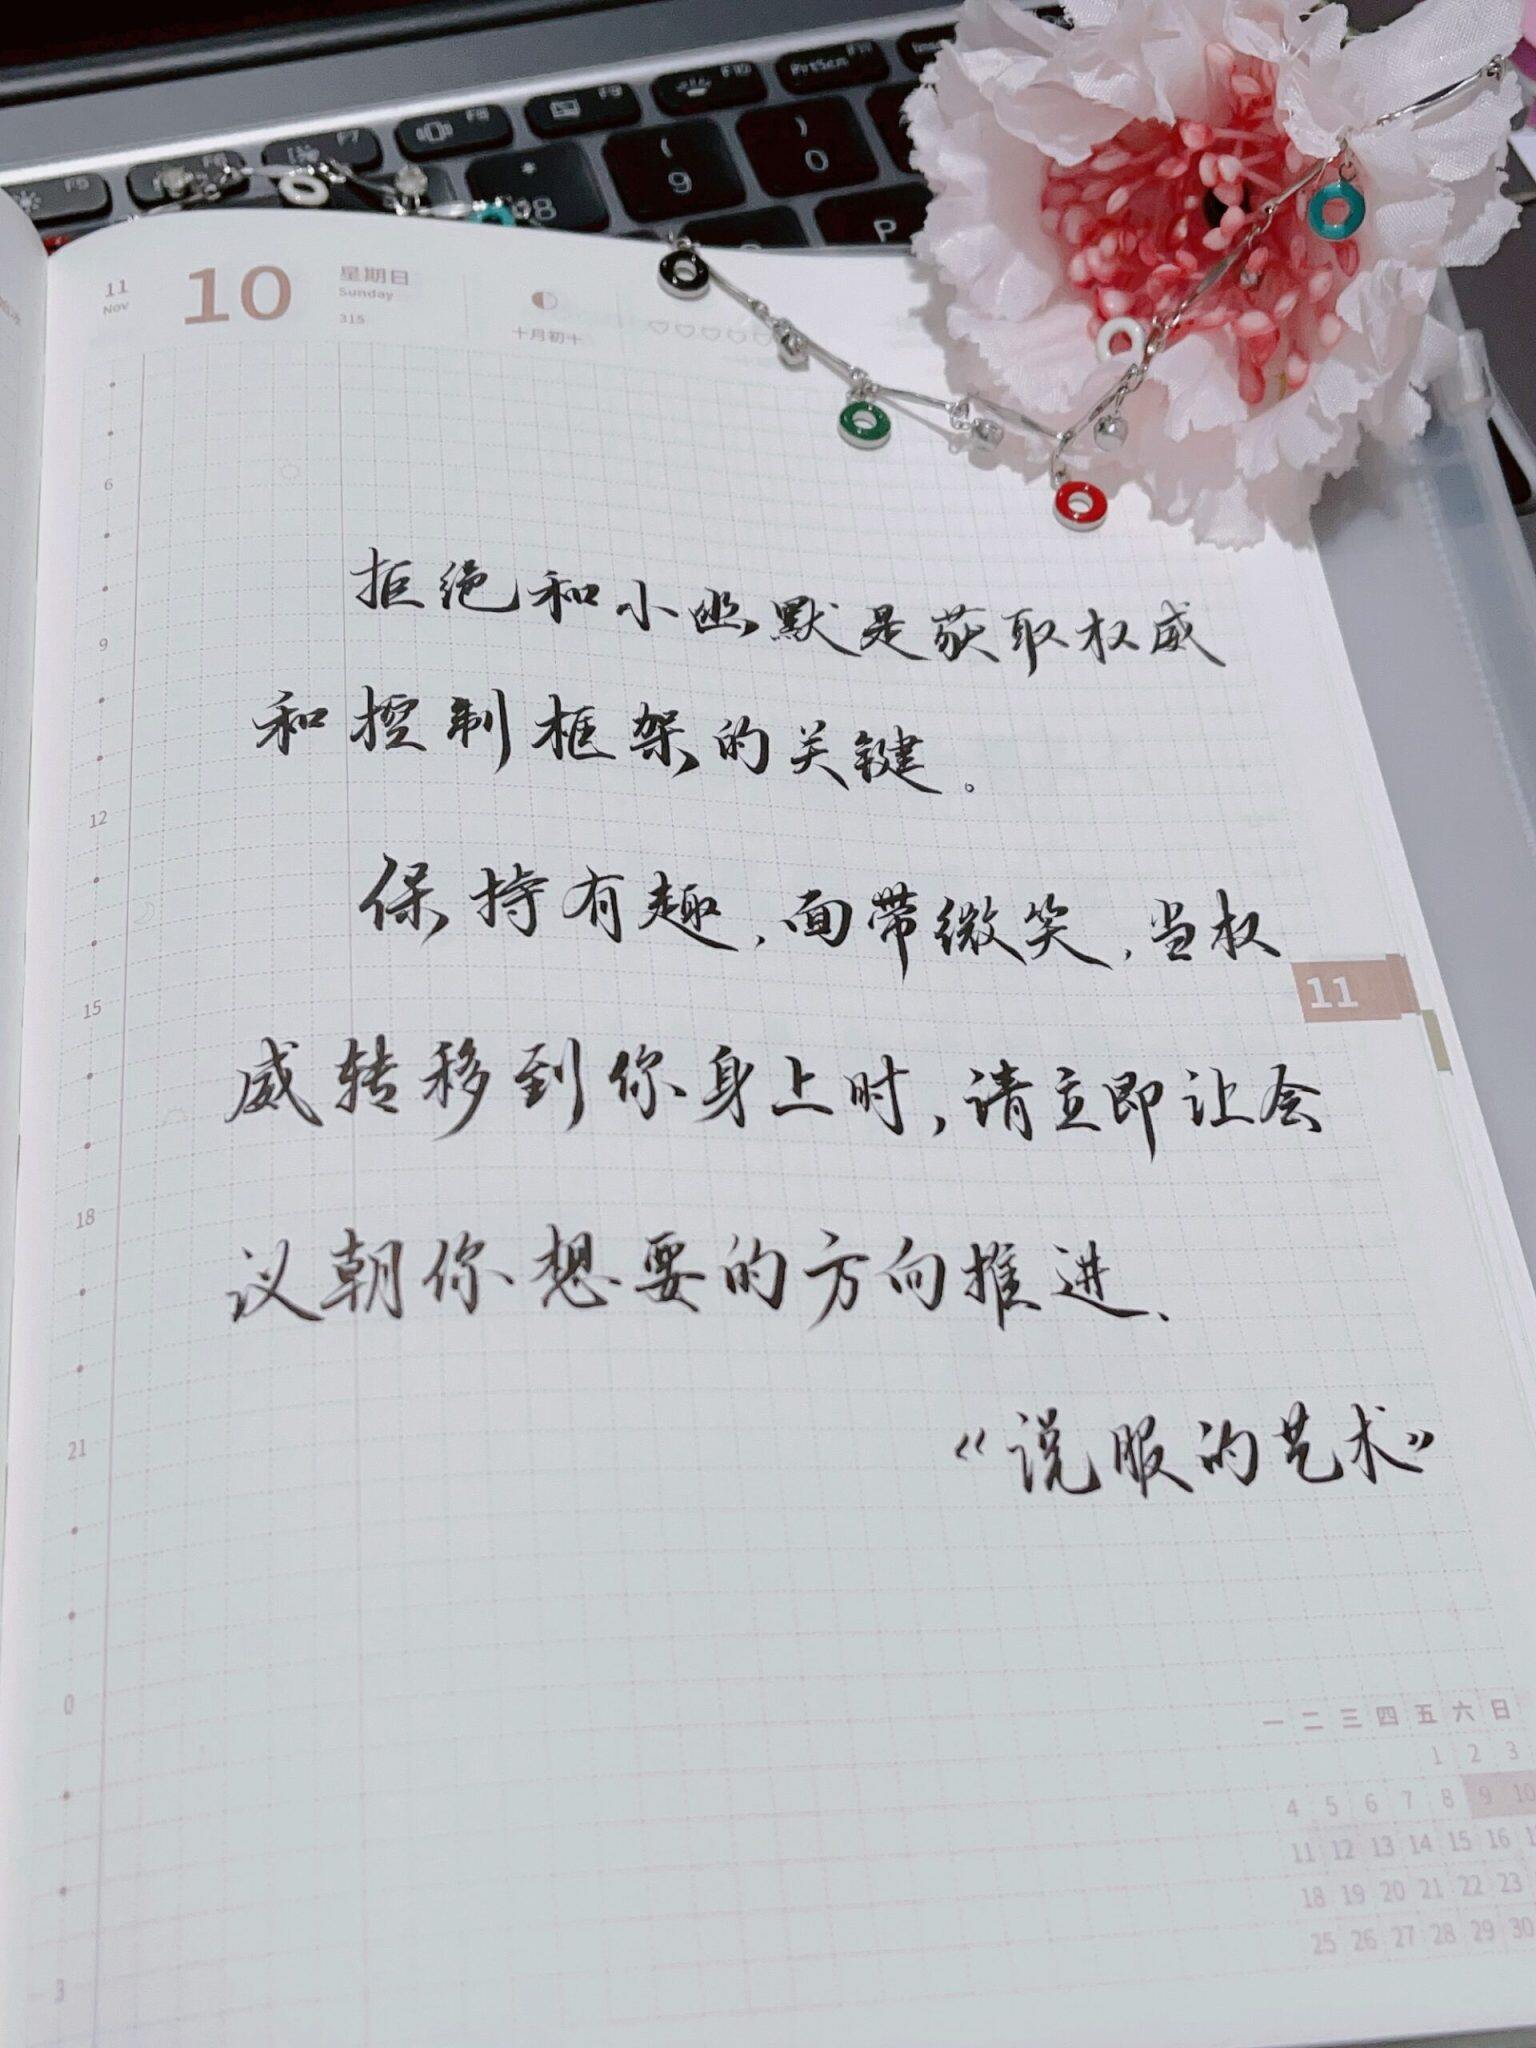 F5 F6 F7 F8 F9 F10 PrtScn
* 8 ( 9 ) 0
P
11 10 星期日
Nov Sunday
315 十月初十
6
9
12
15
18
21
0
3
拒绝和小幽默是获取权威
和控制框架的关键。
保持有趣,面带微笑,当权
威转移到你身上时,请立即让会
议朝你想要的方向推进、
《说服的艺术》
11
一 二 三 四 五 六 日
1 2 3
4 5 6 7 8 9 10
11 12 13 14 15 16
18 19 20 21 22 23
25 26 27 28 29 30